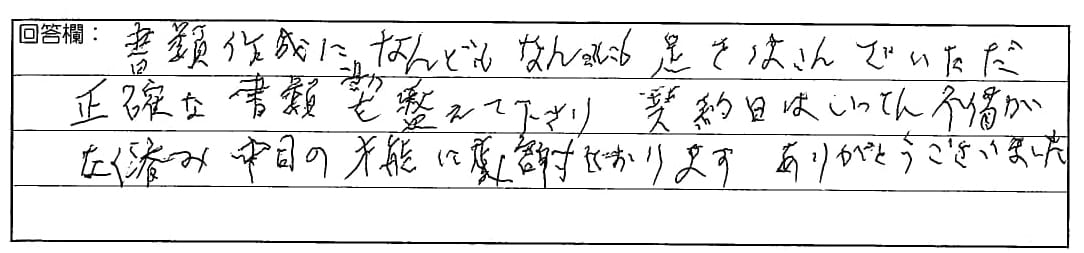 回答欄： 書類作成になんどもなんども足をはこんでいただ
正確な書類を整えて下さり 契約日はいってん不備が
なく済み 本日の状態に感謝しております ありがとうございました